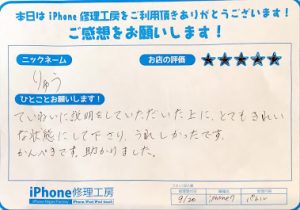 本日は iPhone 修理工房をご利用頂きありがとうございます!
ご感想をお願いします!
ニックネーム
お店の評価
りゅう
★★★★★
ひとことお願いします!
ていねいに説明をしていただいた上に、とてもきれい
な状態にして下さり、うれしかったです。
かんぺきです。助かりました。
iPhone修理工房
9/20
iPhone7